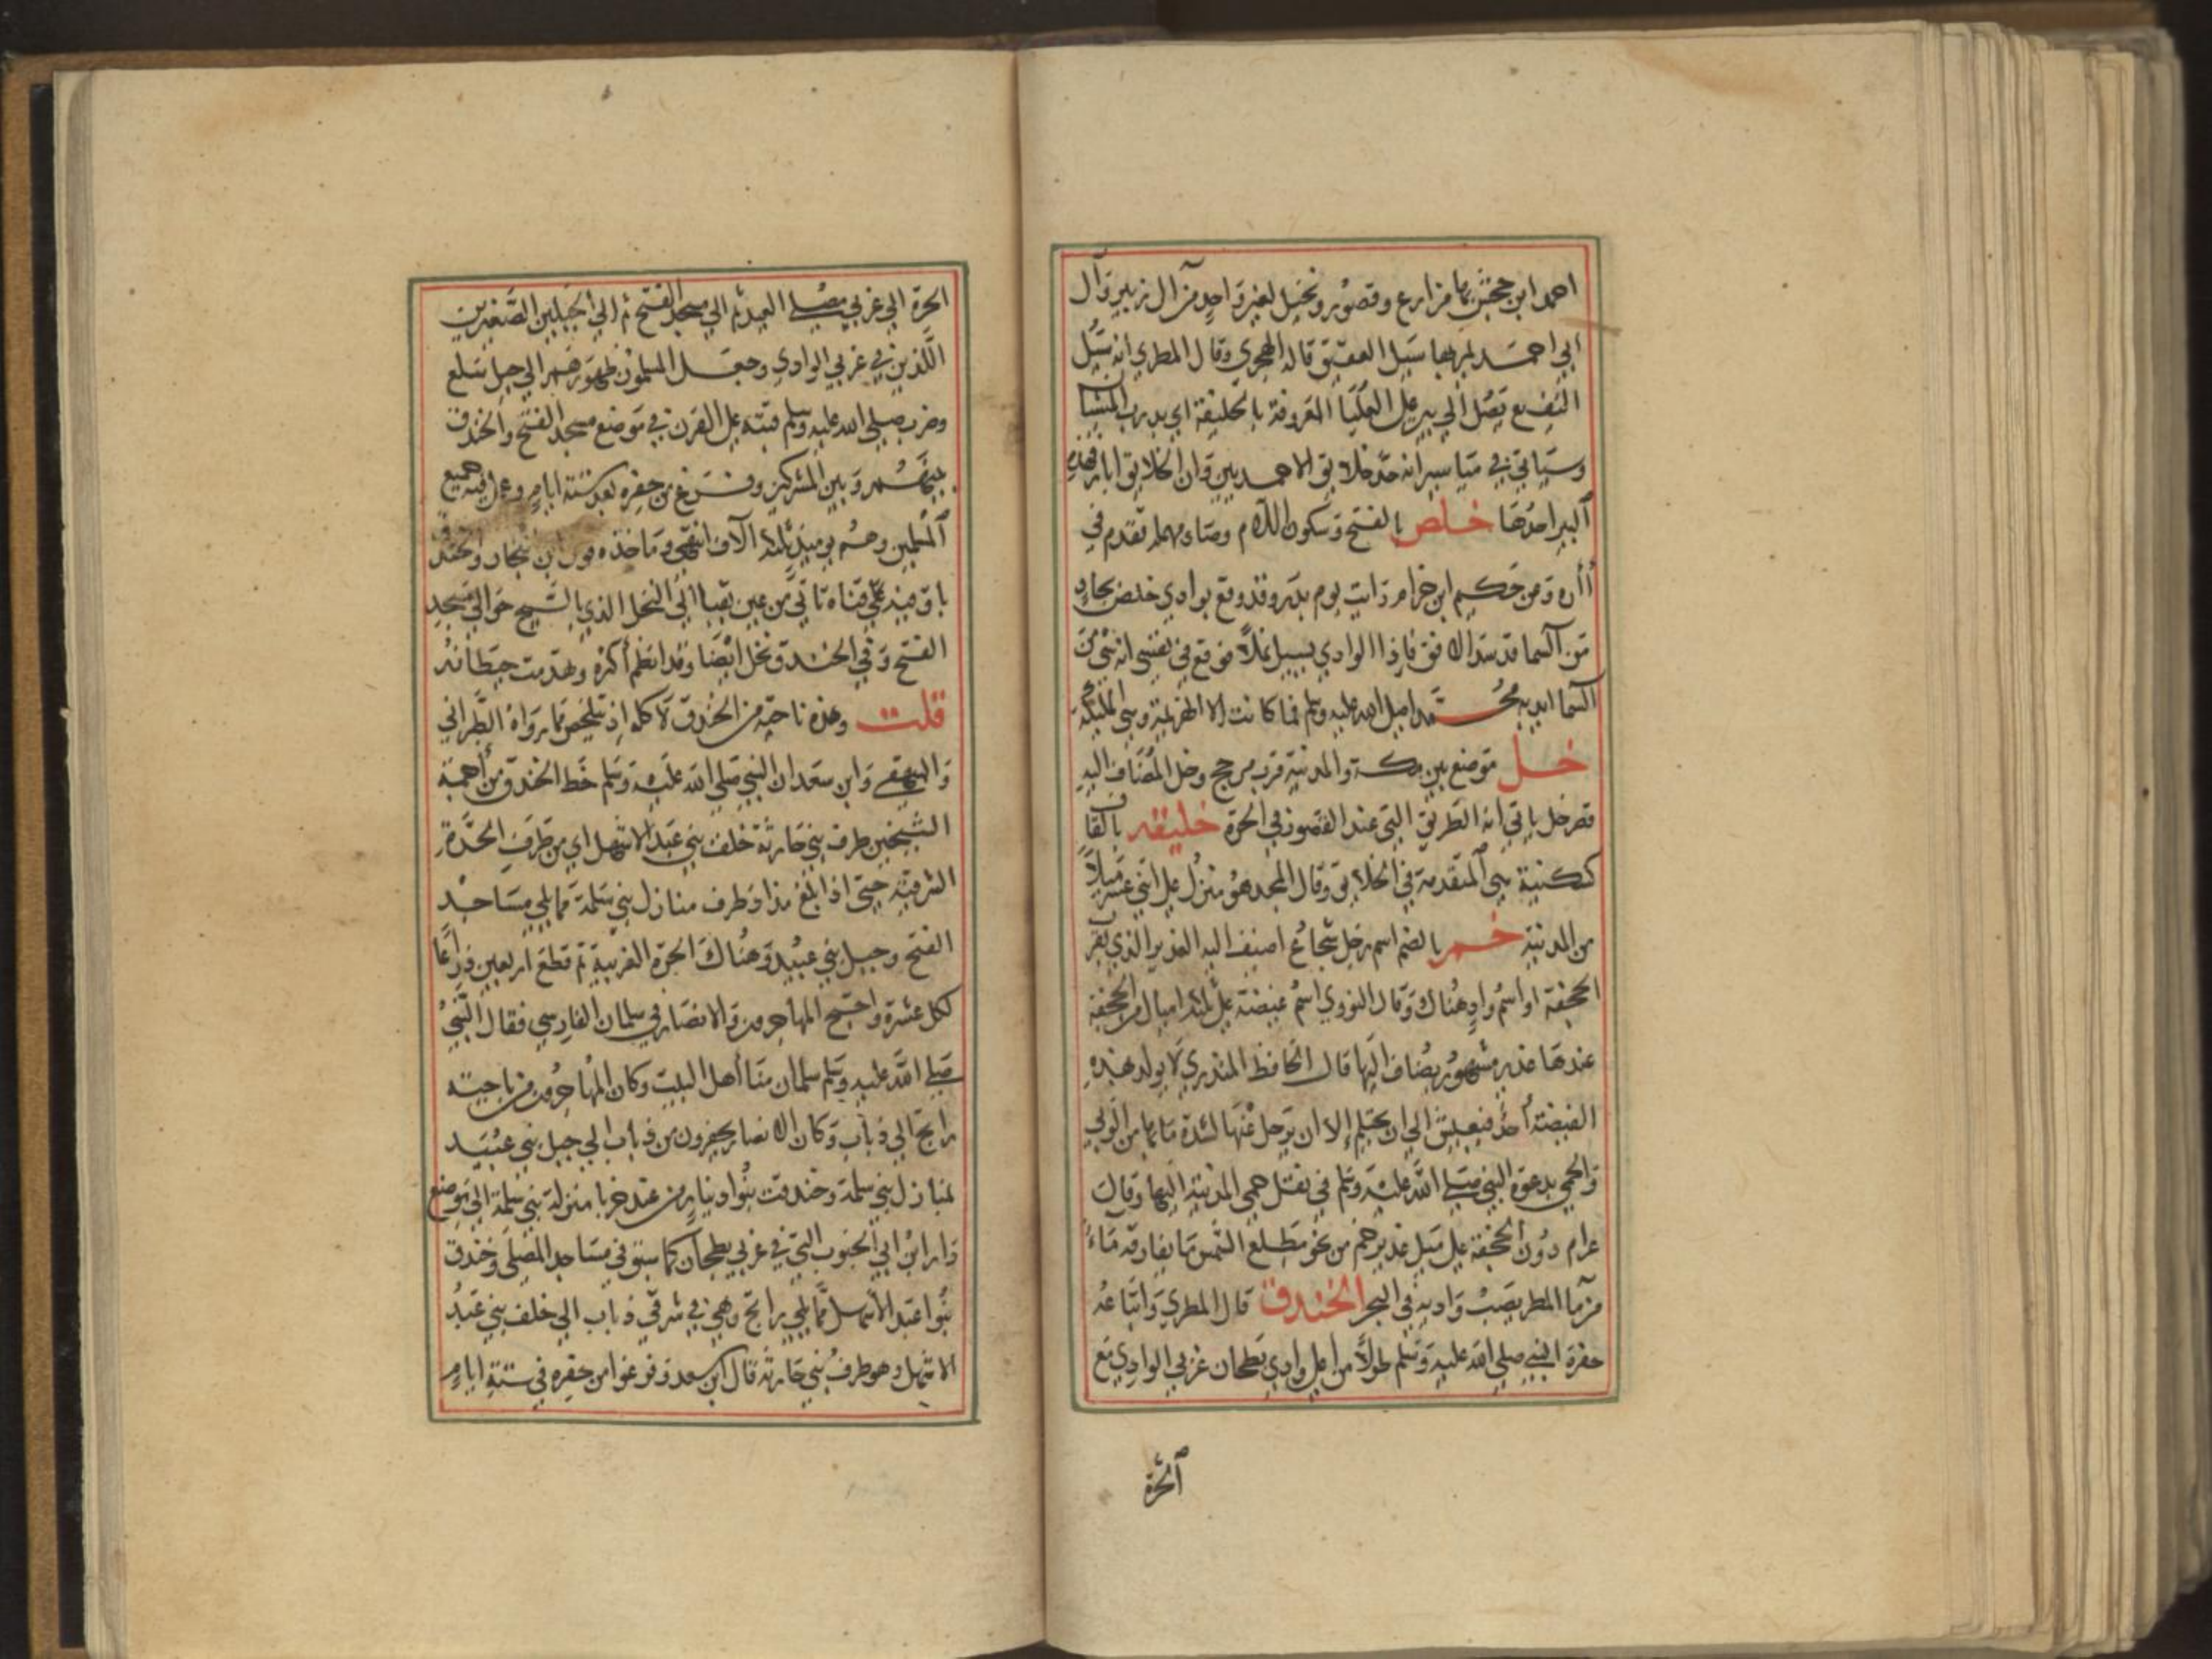 احمد ابن جحش بها مزارع وقصور ونخيل لغير واحد من آل زبير وآل
ابي احمد لمر بها سيل العقيق قاله الهجري وقال المطري انه سيل
النقيع يصل الي بير علي العليا المعروفة بالخليقة اي بدرب المشيا
وسياتي في مياسير انه حد خلايق الاحمديين وان الخلايق ابار
البير احدها خلص بالفتح وسكون اللام وصاد مهملة تقدم في
أأره وعن حكيم ابن حزام رايت يوم بدر وقد وقع بوادي خلص بجاد
من السما قد سد الافق فاذا الوادي يسيل نملا فوقع في نفسي انه شي من
السما ايد به محمد صلي الله عليه وسلم فما كانت الا الهزيمة وهي المليكة
خل موضع بين مكة والمدينة قرب مرجح وخل المضاف اليه
قصر خل ياتي انه الطريق التي عند القصور في الحرة خليقه بالقاف
ككنيسة هي المتقدمة في الخلايق وقال المجد هو منزل علي اثني عشر ميلا
من المدينة خم بالضم اسم رجل شجاع اضيف اليه الغدير الذي بقرب
الجحفة او اسم واد هناك وقال النووي اسم غيضة علي ثلثة اميال من الجحفة
عندها غدير مشهور يضاف اليها قال الحافظ المنذري لا يولد بهذه
الغيضة احد فيعيش الي ان يحتلم إلا ان يرحل عنها لشدة ما بها من الوبي
والحمي بدعوة النبي صلي الله عليه وسلم في نقل حمي المدينة اليها وقال
عرام دون الجحفة علي ميل غدير خم من نحو مطلع الشمس ما يفارقه ماء
من ما المطر يصب واديه في البحر الخندق قال المطري واتباعه
حفرة النبي صلي الله عليه وسلم طولا من اعلي وادي بطحان غربي الوادي مع
الحرة
الحرة الي غربي مصلي العيد ثم الي مسجد الفتح ثم الي الجبلين الصغيرين
اللذين في غربي الوادي وجعل المسلمون ظهورهم الي جبل سلع
وضرب صلي الله عليه وسلم قبته علي القرن في موضع مسجد الفتح والخندق
بينهم وبين المشركين وفرغ من حفره بعد ستة ايام وعمل فيه جميع
المسلمين وهم يوميذ ثلثة آلاف انتهي وماخذه قول ابن نجار والخندق
باق فيه قناة تاتي من عين بقبا الي النخل الذي بالسيح حوالي مسجد
الفتح وفي الخندق نخل ايضا وقد انطم أكثره وتهدمت حيطانه
قلت وهذه ناحية من الخندق لا كله اذ تلخيص ما رواه الطبراني
والبيهقي وابن سعد ان النبي صلي الله عليه وسلم خط الخندق من أجمة
الشيخين طرف بني حارثة خلف بني عبد الاشهل اي من طرف الحرة
الشرقية حتي اذا بلغ مذاد طرف منازل بني سلمة مما يلي مساجد
الفتح وجبل بني عبيد وهناك الحرة الغربية ثم قطع اربعين ذراعا
لكل عشرة واحتج المهاجرون والانصار في سلمان الفارسي فقال النبي
صلي الله عليه وسلم سلمان منا أهل البيت وكان المهاجرون من ناحية
راتج الي ذباب وكان الانصار يحفرون من ذباب الي جبل بني عبيد
بمنازل بني سلمة وخندقت بنوا دينار من عند خربا منزلة بني سلمة الي موضع
دار ابن ابي الجنوب التي في غربي بطحان كما سبق في مساجد المصلي وخندق
بنوا عبد الاشهل مما يلي راتج وهي في شرقي ذباب الي خلف بني عبد
الاشهل وهو طرف بني حارثة قال ابن سعد وفرغوا من حفره في ستة ايام